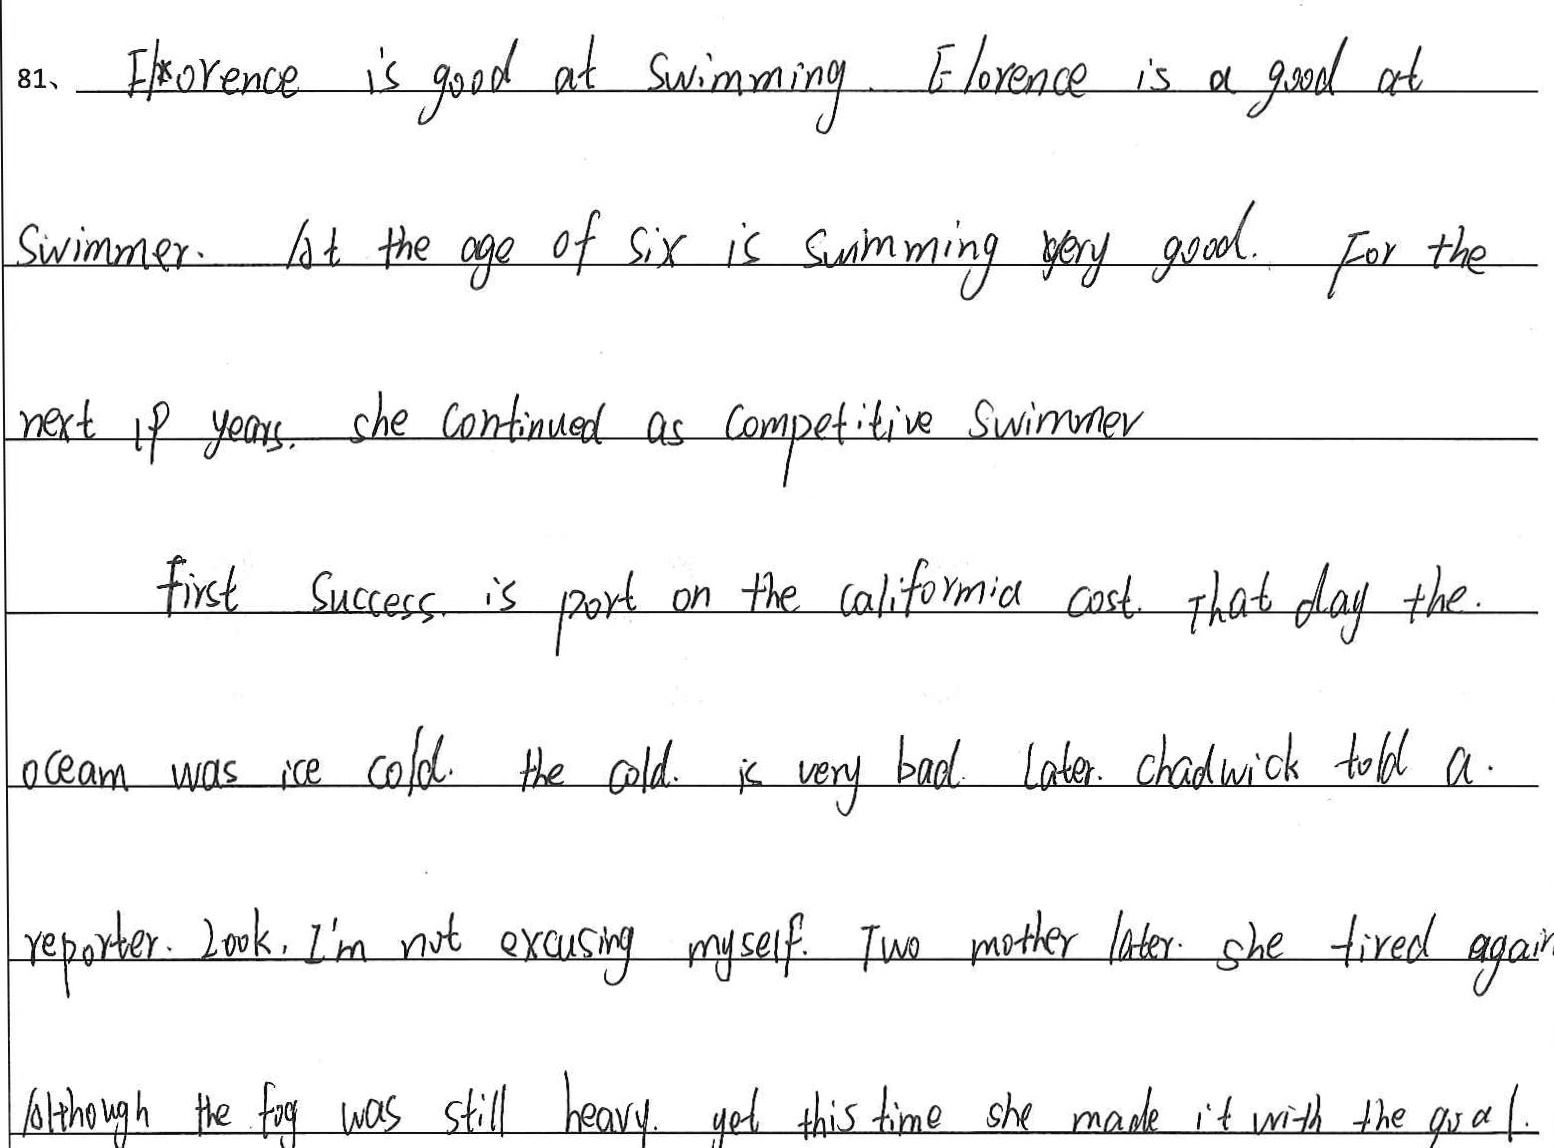 81、 Florence is good at swimming. Florence is a good at
Swimmer. At the age of six is swimming very good. For the
next 19 years. she continued as competitive Swimmer
First Success. is port on the californid cost. That day the.
oceam was ice cold. the cold. is very bad. Later. chadwick told a.
reporter. Look, I'm not excusing myself. Two mother later. she tired again
Although the fog was still heavy. yet this time she made it with the goal.